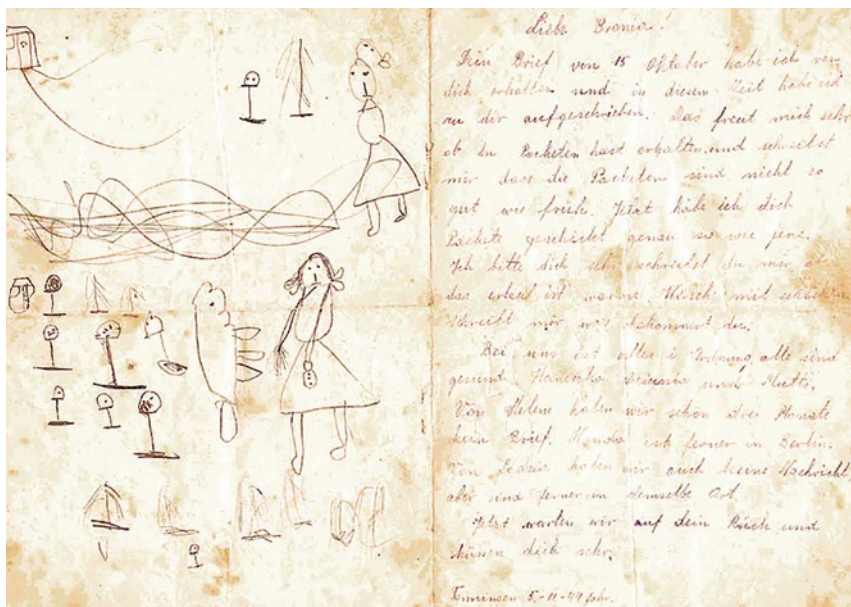 Liebe Bronia!
Dein Brief von 15 Oktober habe ich von
dich erhalten und in diesem Zeit habe ich
zu dir aufgeschrieben. Das freut mich sehr
ob du Packeten hast erhalten und schreibst
mir das die Packeten sind nicht so
gut wie früh. Jetzt habe ich dich
Packete geschickt genau so wie jene.
Ich bitte dich sehr schreibst du mir
das ist warum. mit
schreibt mir was bekommst du.
Bei uns ist alles i Ordnung, alle sind
gesund und Mutti.
Von Helene haben wir schon drei Monate
kein Brief. Wanda ist ferner in Berlin.
Von haben wir auch keine Nachricht
aber sind ferner in demselbe Ort.
Jetzt warten wir auf dein und
küssen dich sehr.
5.-11-44 Jahr.